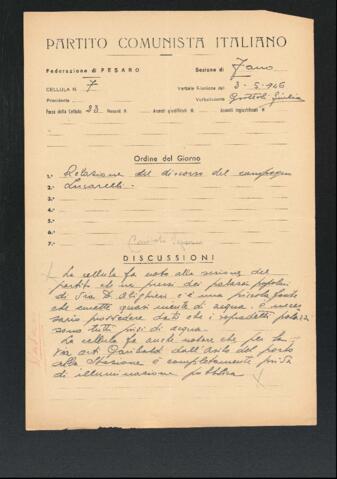 PARTITO COMUNISTA ITALIANO
Federazione di PESARO
Sezione di Fano
CELLULA N. 7
Verbale Riunione del 3-5-946
Presidente
Verbalizzante
Forza della Cellula 23 Presenti N. Assenti giustificati N. Assenti ingiustificati N.
Ordine del Giorno
1.- Relazione del discorso del compagno
2.- Lucarelli.
3.-
4.-
5.-
6.-
7.-
DISCUSSIONI
La cellula fa noto alla sezione del
partito che nei pressi dei palazzi popolari
di Via D. Alighieri c'è una piccola fonte
che emette quasi niente di acqua. È neces
sario provvedere dato che i sopradetti palazzi
sono tutti privi di acqua.
La cellula fa anche notare che per la
Via G. Garibaldi dall'Arco del porto
alla Stazione è completamente priva
di illuminazione pubblica